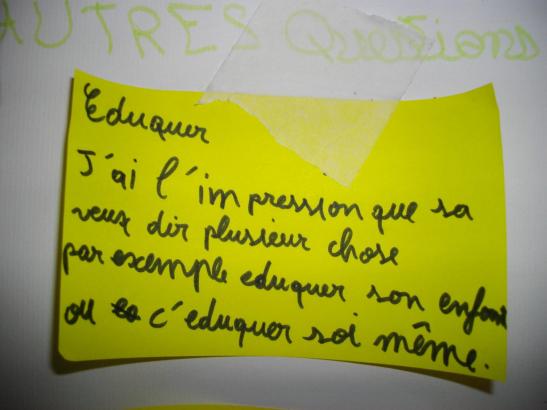 AUTRES Questions
Eduquer
J'ai l'impression que sa
veux dir plusieur chose
par exemple eduquer son enfant
ou c'eduquer soi même.